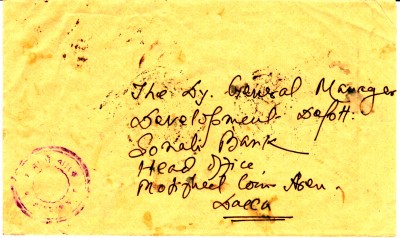 The Dy. General Manager
Development Deptt.
Sonali Bank
Head Office
Motijheel Com. Area.
Dacca